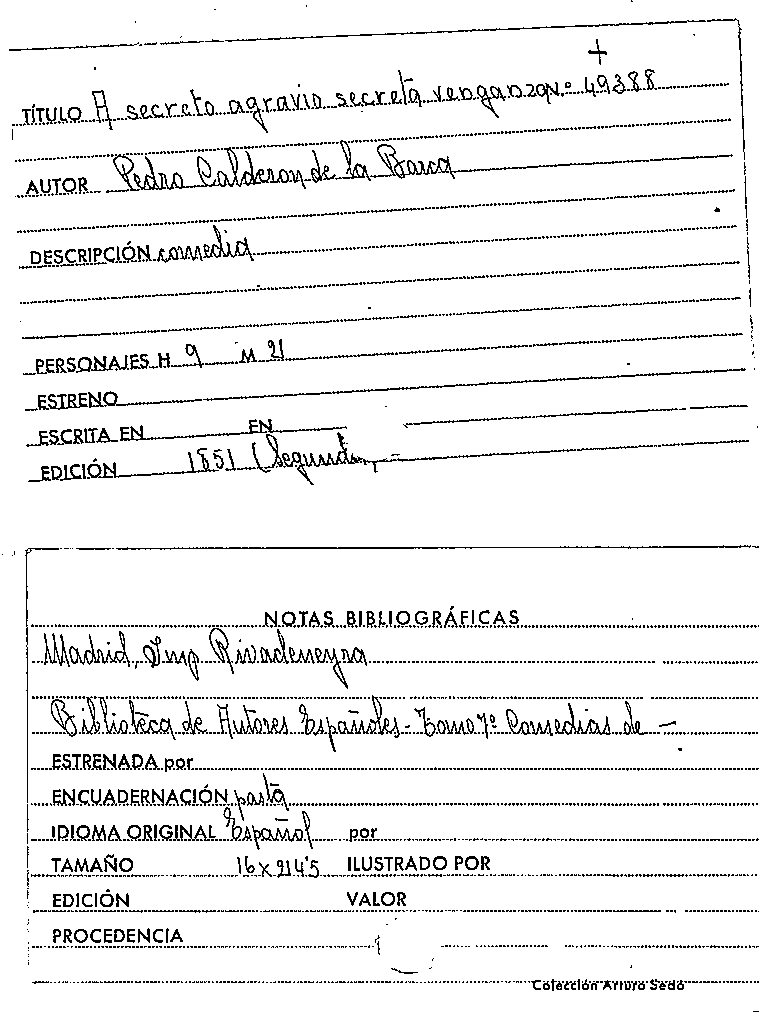 +
TÍTULO A secreto agravio secreta venganza N.º 49388
AUTOR Pedro Calderon de la Barca
DESCRIPCIÓN comedia
PERSONAJES H 9 M 2
ESTRENO
ESCRITA EN EN
EDICIÓN 1851 (Segunda) -
NOTAS BIBLIOGRÁFICAS
Madrid, Imp Rivadeneyra
Biblioteca de Autores Españoles - Tomo 7º Comedias de —
ESTRENADA por
ENCUADERNACIÓN pasta
IDIOMA ORIGINAL Español por
TAMAÑO 16 x 24'5 ILUSTRADO POR
EDICIÓN VALOR
PROCEDENCIA
Colección Arturo Sedó